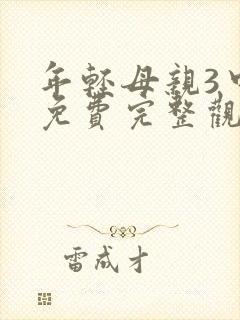 年輕母親3中
免費完整觀
雷成才